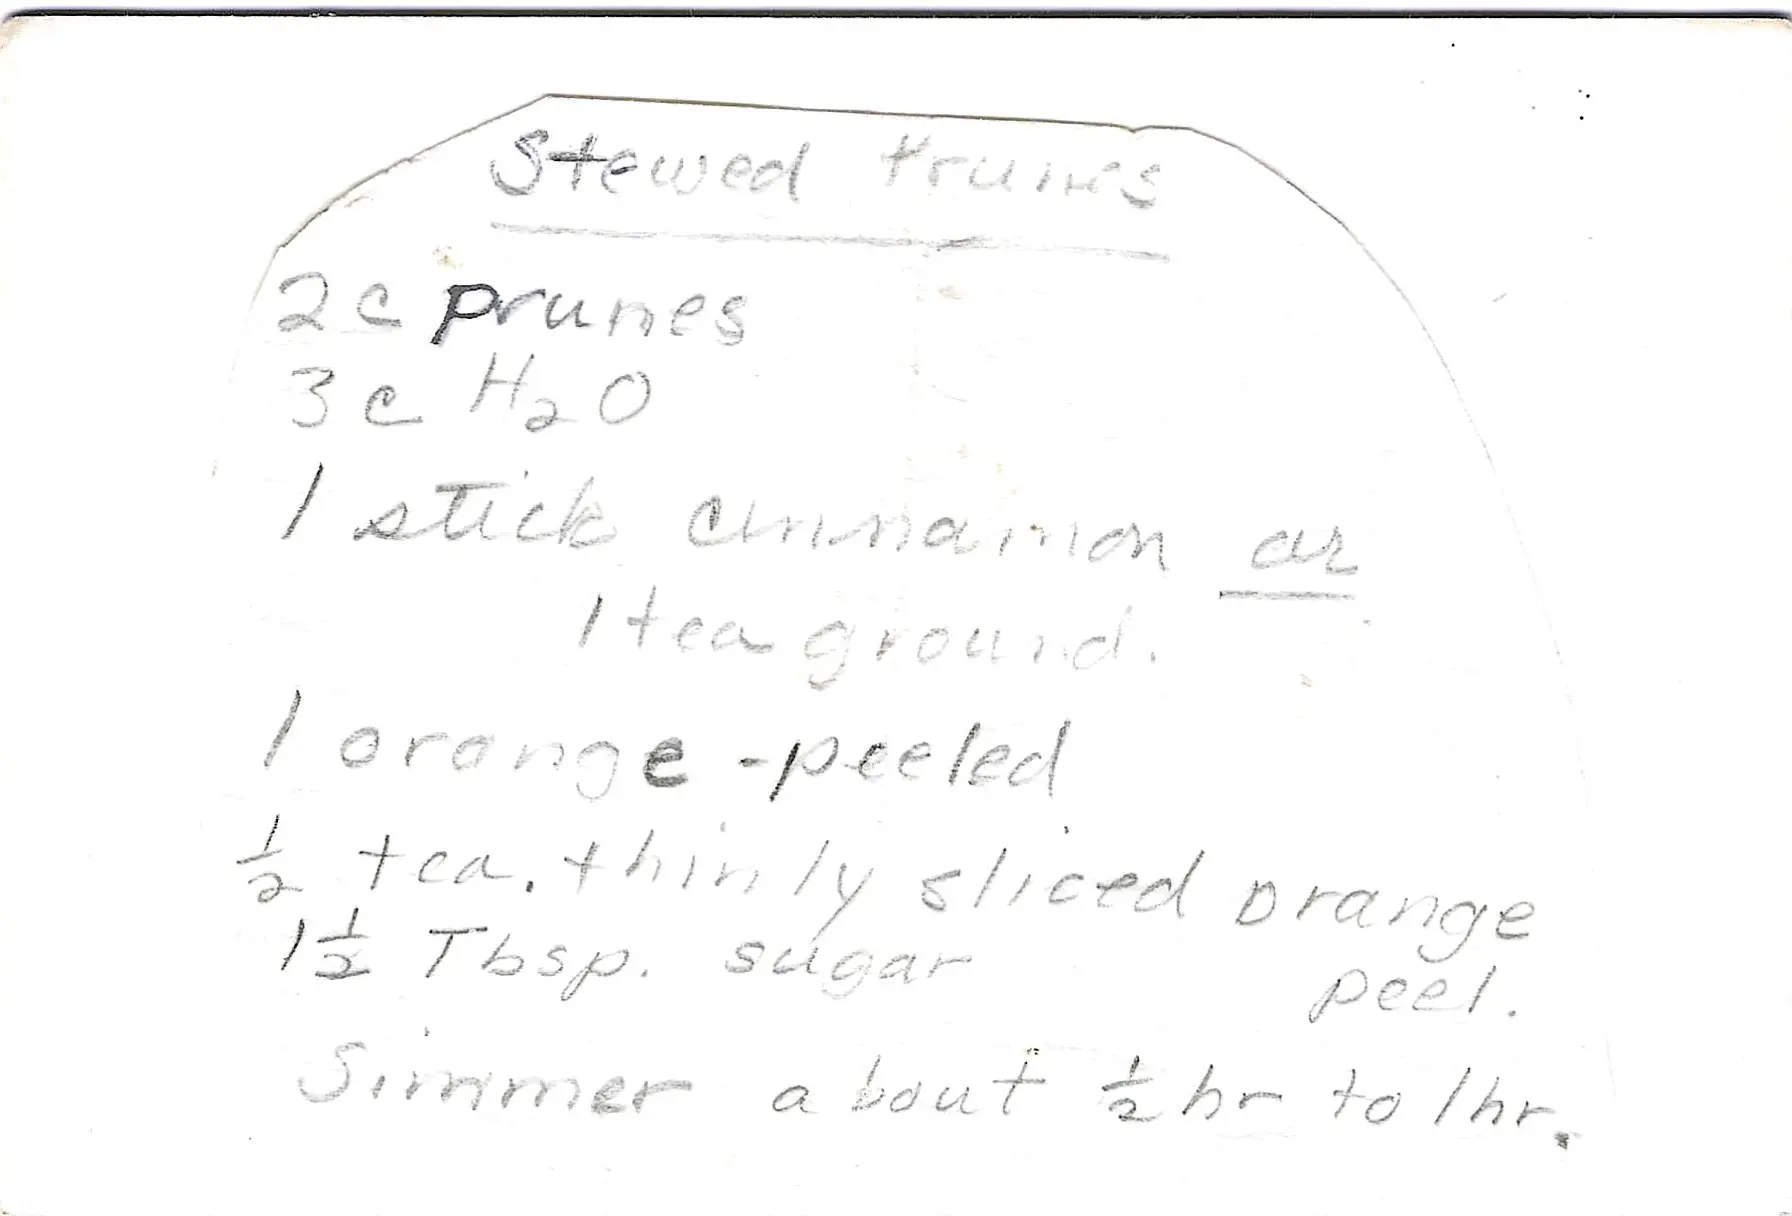 Stewed Prunes
2c prunes
3c H2O
1 stick cinnamon or
1 tea ground.
1 orange - peeled
½ tea. thinly sliced orange
peel.
1½ Tbsp. sugar
Simmer about ½ hr to 1 hr.